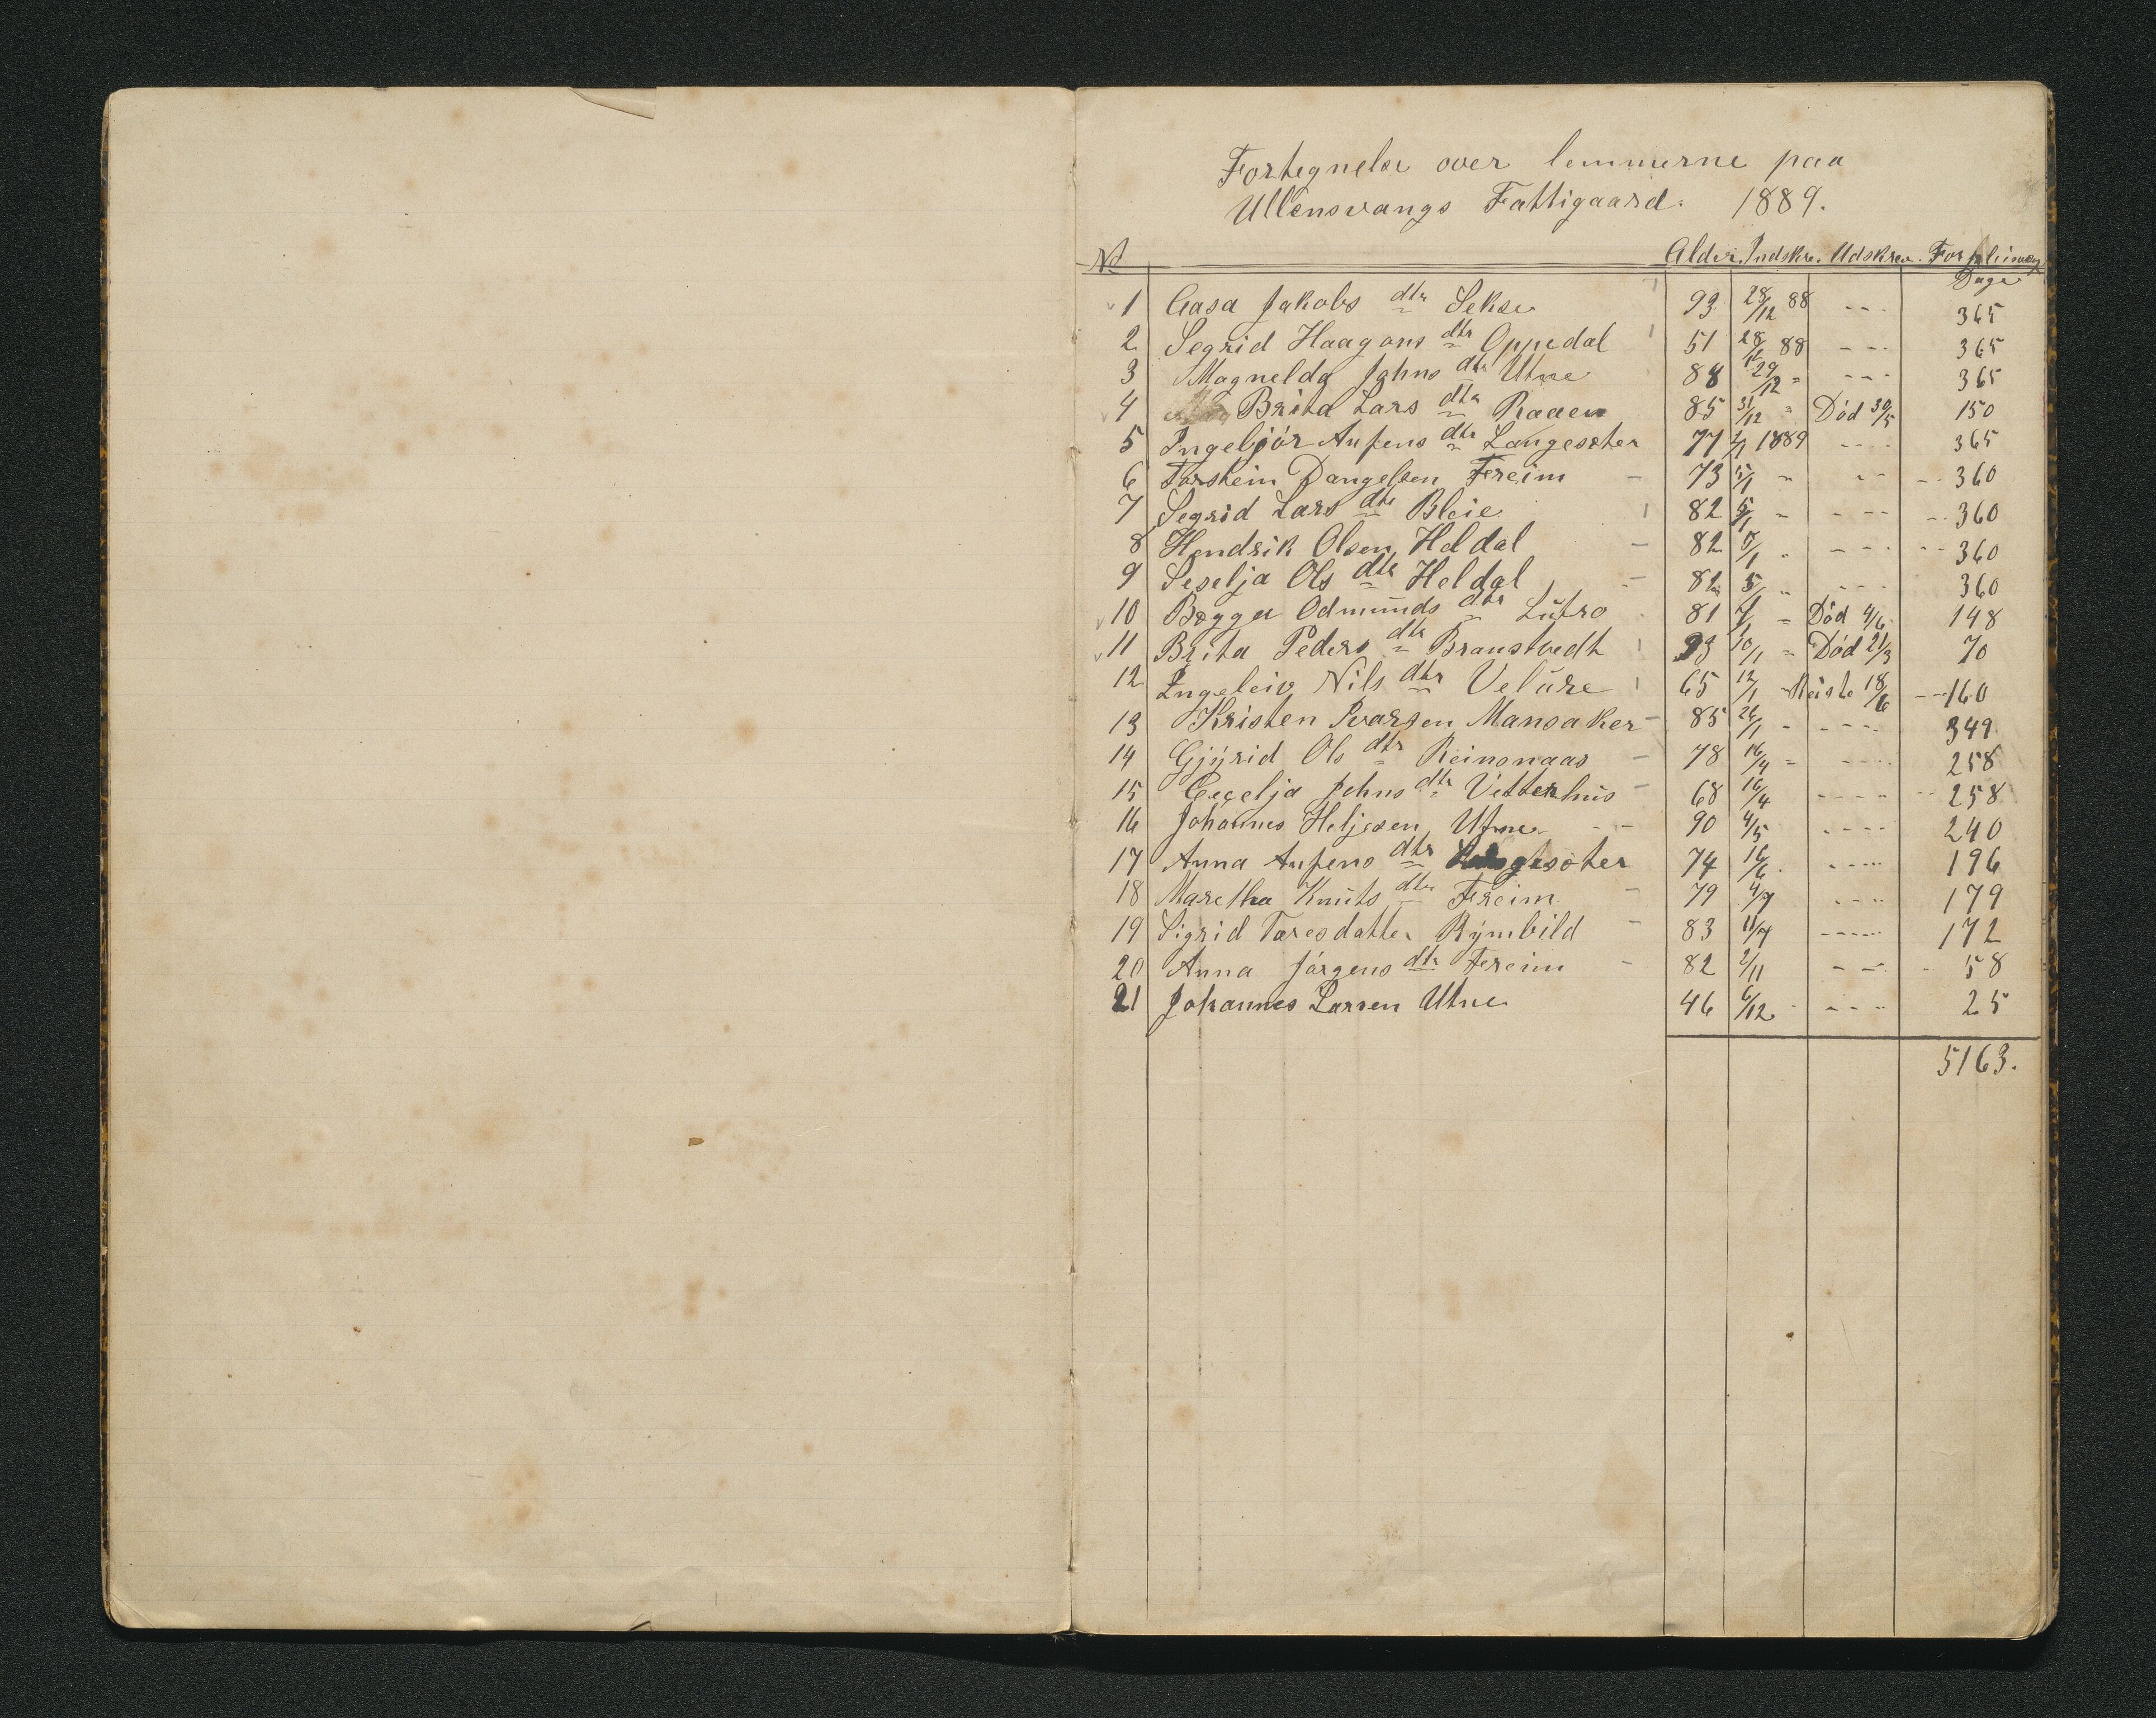 Fortegnelse over lemmerne paa
Ullensvangs Fattigaard. 1889.
No Alder. Indskr. Udskrev. Forpleinings
Dage
1 Aasa Jakobs dtr Sekse 93 28/12 88 --- 365
2 Segrid Haagons dtr Oppedal 51 28/12 88 --- 365
3 Magnelda Johns dtr Utne 88 29/12 " --- 365
4 Brita Lars dtr Raaen 85 31/12 " Död 30/5 150
5 Ingebjör Aufens dtr Langesæter 77 1/1 1889 --- 365
6 Torstein Dangelsen Freim - 73 5/1 " -- 360
7 Segrid Lars dtr Bleie 82 5/1 " --- 360
8 Hendrik Olsen Heldal - 82 5/1 " --- 360
9 Seselja Ols dtr Heldal - 82 5/1 " --- 360
10 Bægga Odmunds dtr Lutro 81 7/1 " Död 4/6 148
11 Brita Peders dtr Branstvedt 93 10/1 " Död 21/3 70
12 Engeleiv Nils dtr Velure 65 12/1 " Reiste 18/6 160
13 Kristen Ivarsen Mansaker - 85 26/1 - --- 349
14 Gjyrid Ols dtr Reinsnaas - 78 16/4 " --- 258
15 Cecelja Johns dtr Vetterhus - 68 16/4 ---- 258
16 Johannes Heljesen Utne -- 90 4/5 ---- 240
17 Anna Aufens dtr Langesöter 74 16/6 ---- 196
18 Maretha Knuts dtr Freim - 79 4/7 ---- 179
19 Sigrid Taresdatter Rymbild - 83 11/7 ----- 172
20 Anna Jörgens dtr Freim - 82 2/11 --- 58
21 Johannes Larsen Utne 46 6/12 ---- 25
5163.